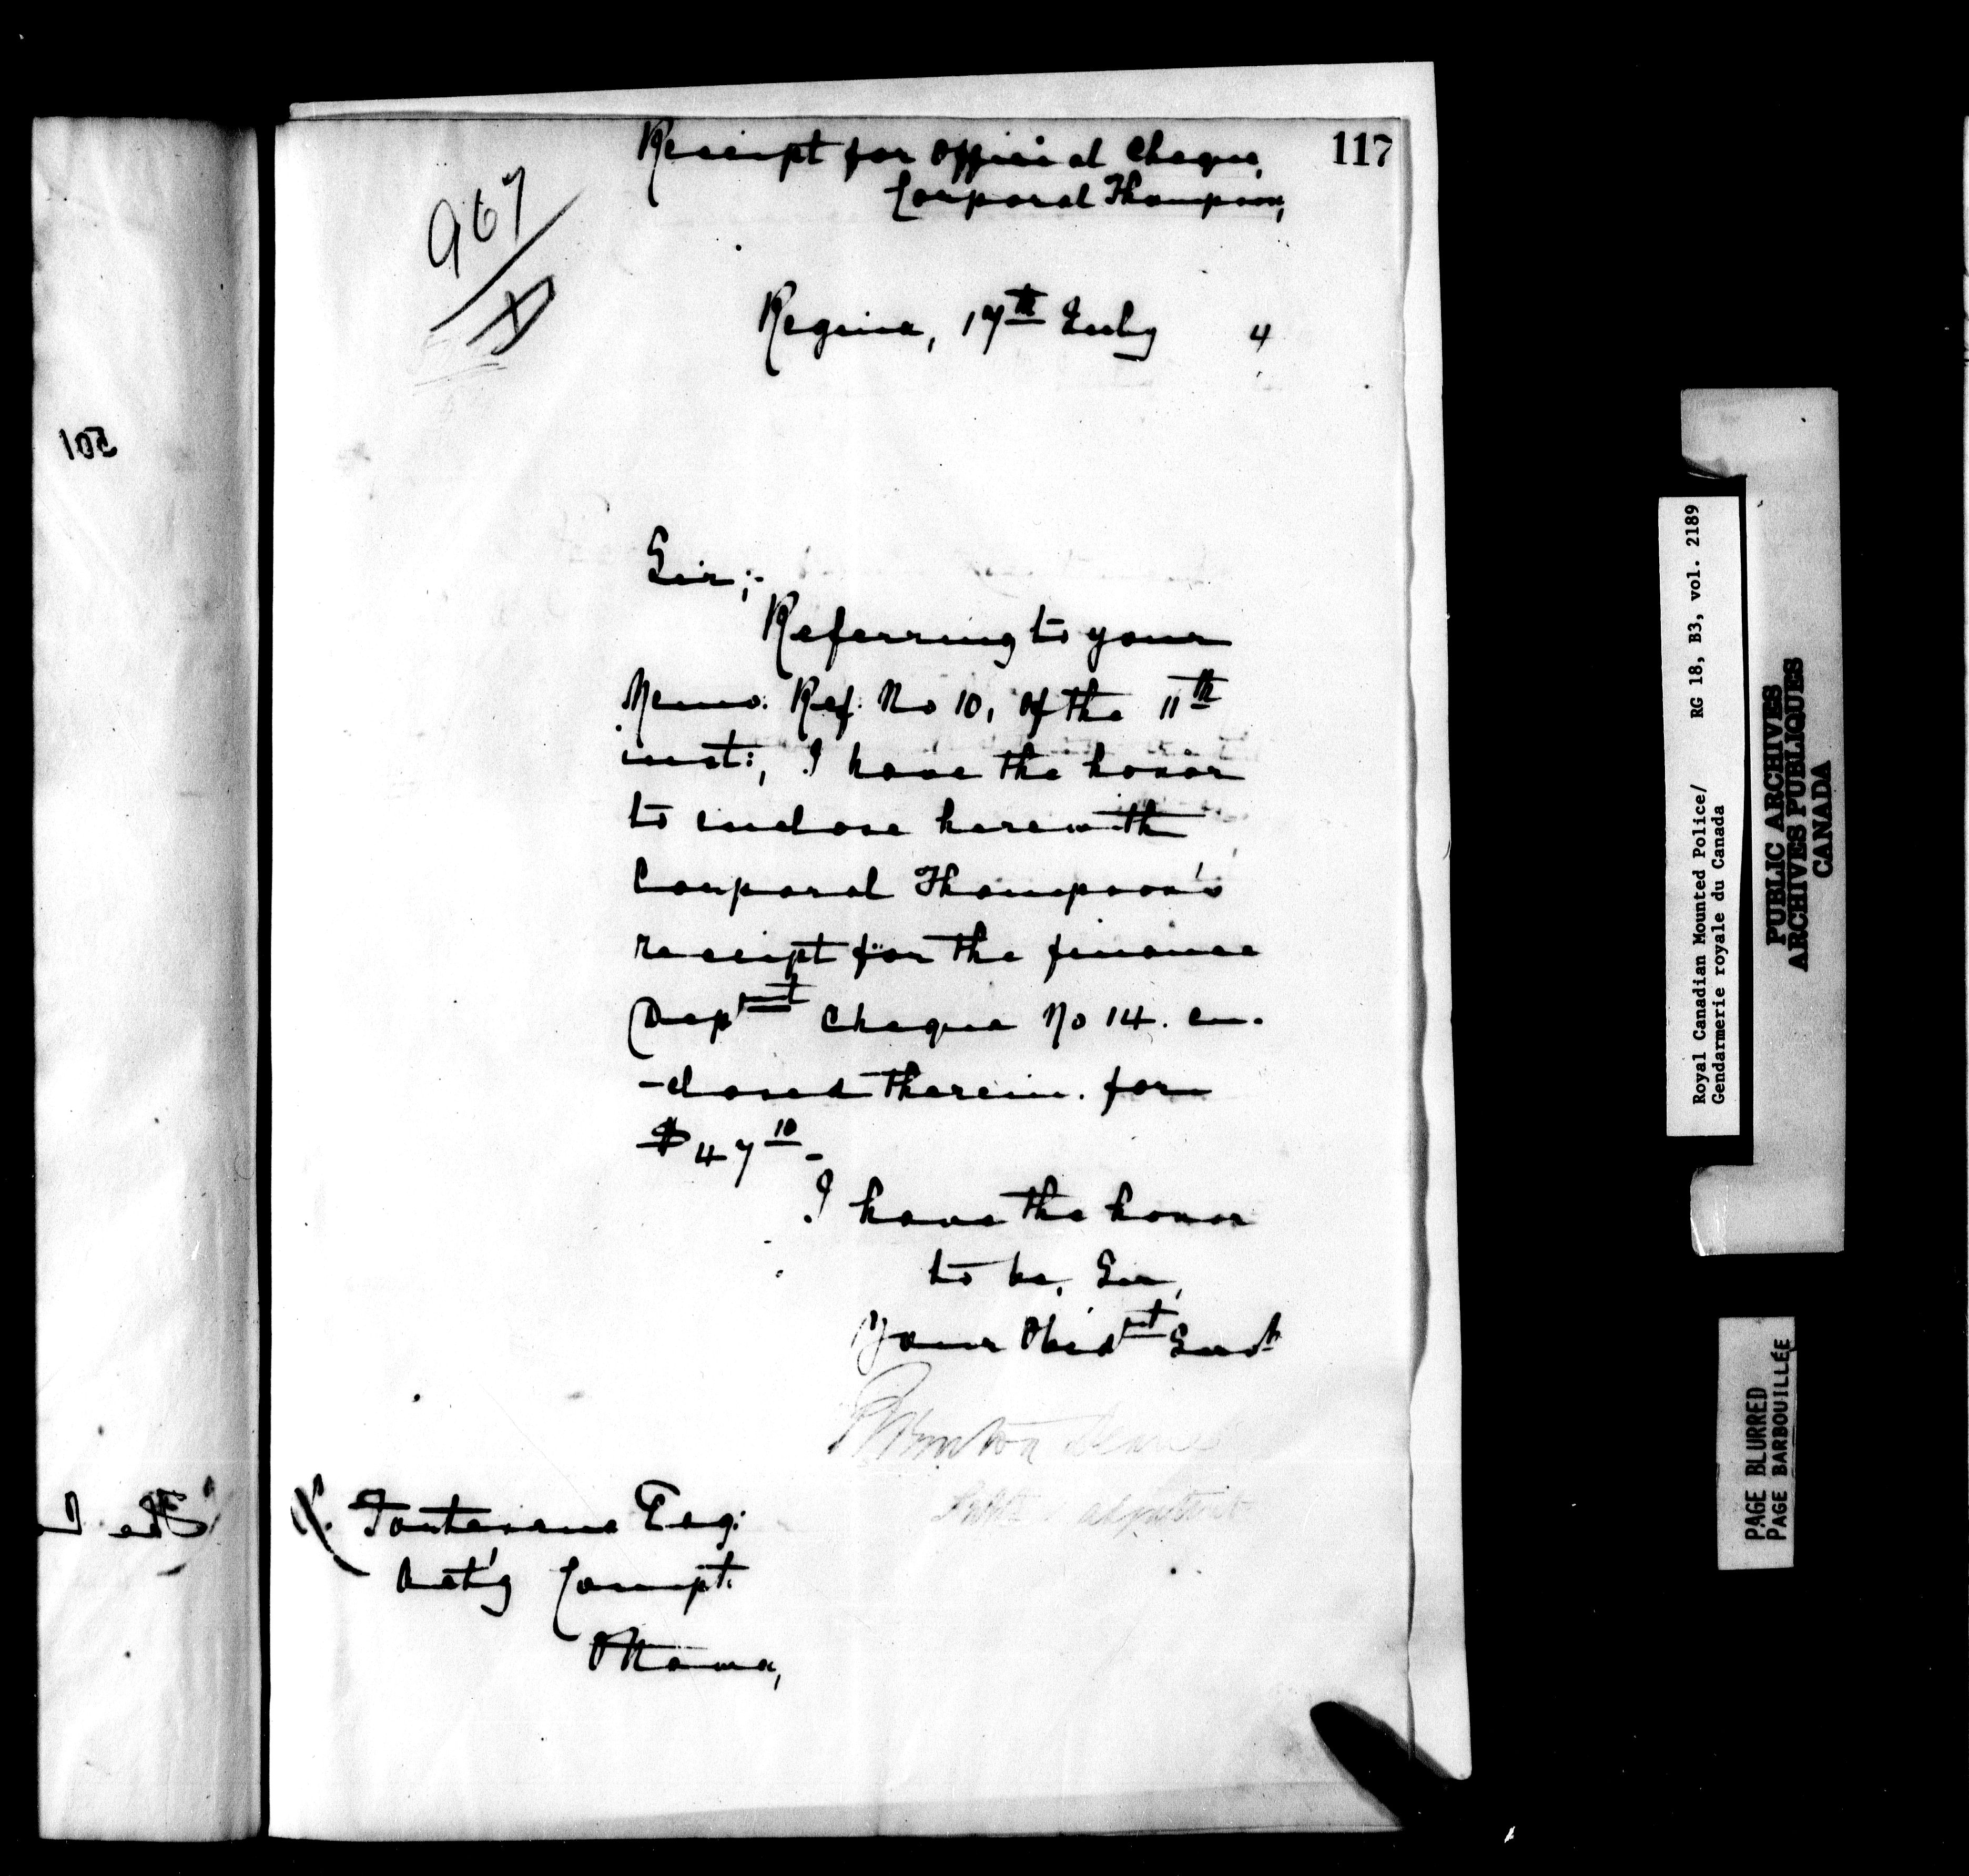 117
Receipt for Official Cheque,
Corporal Thompson,
967
Regina, 17th July 4
Sir;-
Referring to your
Memo: Ref: No 10, of the 11th
inst:, I have the honor
to enclose herewith
Corporal Thompson's
receipt for the finance
Deptmt Cheque No 14. en-
-closed therein. for
$47 10 -
I have the honor
to be, Sir,
Your Obednt Servt
R Burton Deane
Adjutant
Fontaine Esq:
Act'g Compt.
Ottawa,
501
Royal Canadian Mounted Police/ RG 18, B3, vol. 2189
Gendarmerie royale du Canada
PUBLIC ARCHIVES
ARCHIVES PUBLIQUES
CANADA
PAGE BLURRED
PAGE BARBOUILLÉE